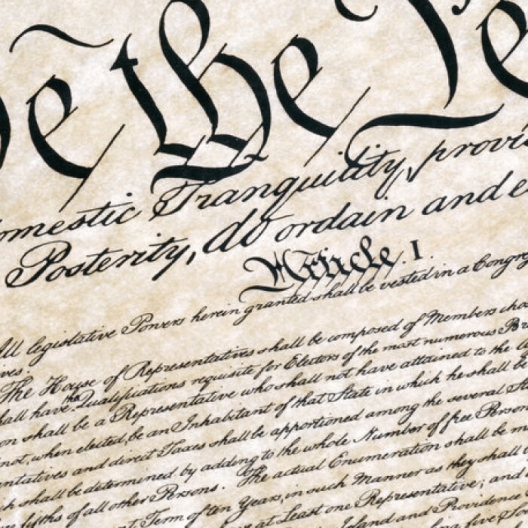 We the Pe
omestic Tranquility, provi
Posterity, do ordain and e
Article. I.
All legislative Powers herein granted shall be vested in a Congr
ves.
The House of Representatives shall be composed of Members cho
hall have the Qualifications requisite for Electors of the most numerous Br
on shall be a Representative who shall not have attained to the
not, when elected, be an Inhabitant of that State in which he shall be
entatives and direct Taxes shall be apportioned among the several
h shall be determined by adding to the whole Number of free Person
ee fifths of all other Persons. The actual Enumeration shall be m
t Term of ten Years, in such Manner as they shall
ve at Least one Representative; and
and Providence